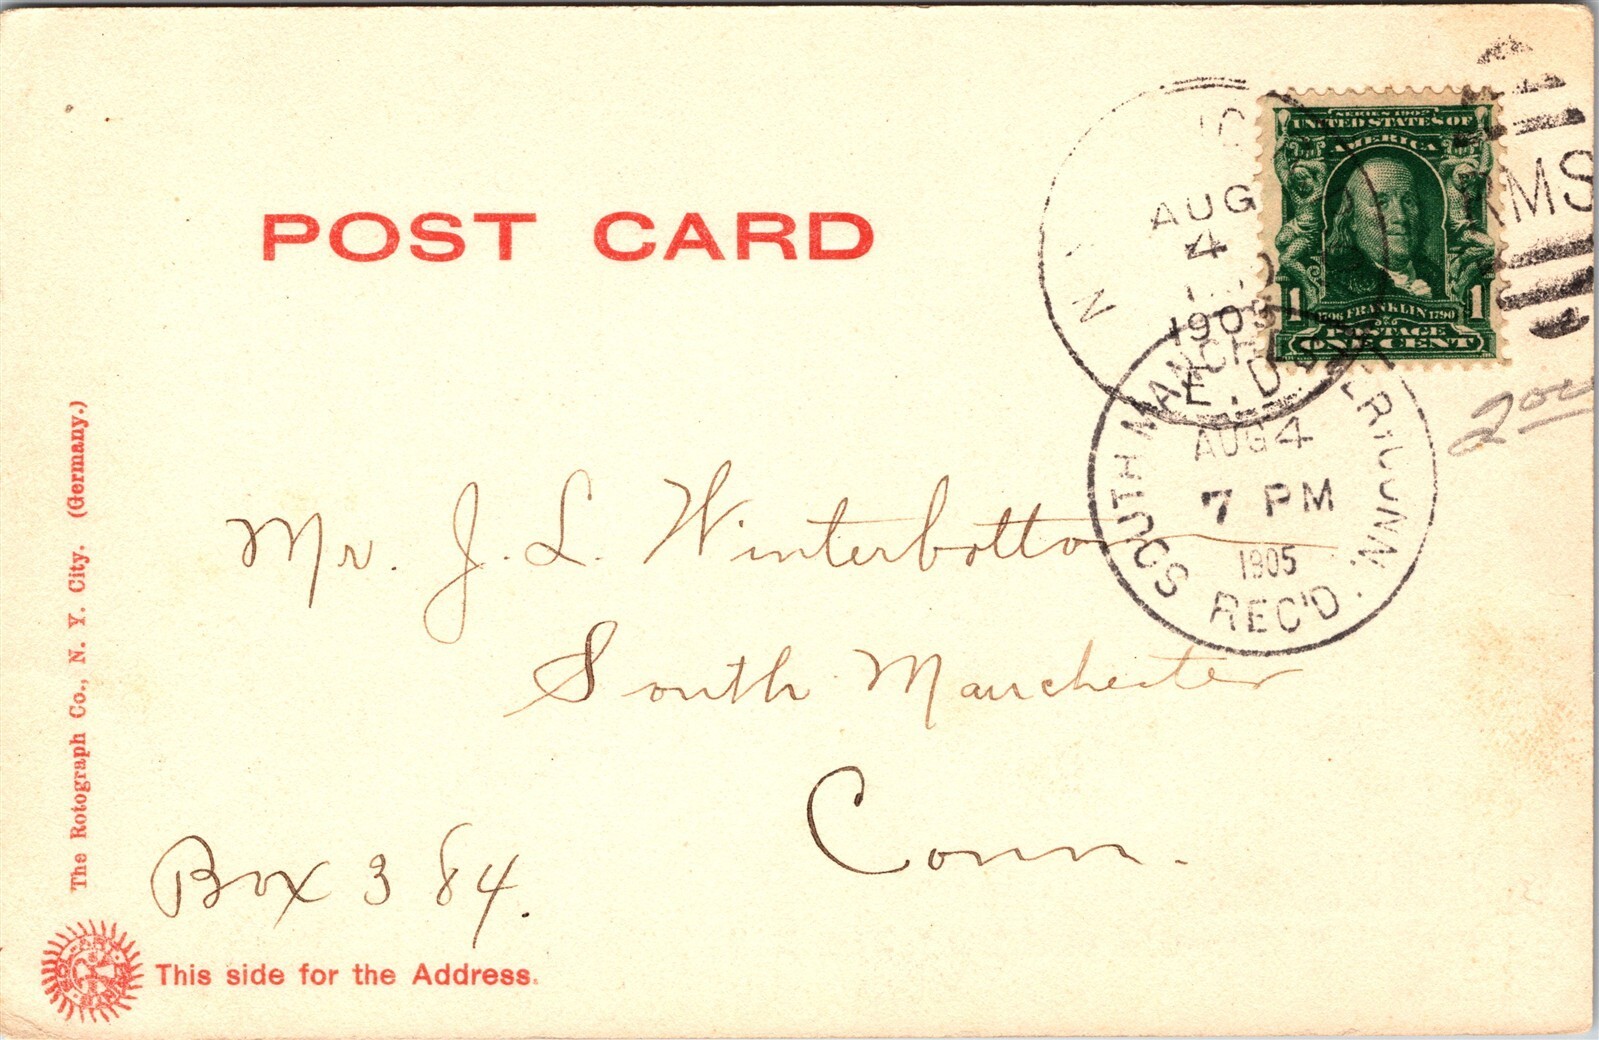 POST CARD
SERIES 1902
UNITED STATES OF
AMERICA
1 1
FRANKLIN 1790
POSTAGE
ONE CENT
RMS
N
AUG
4
1905
E. D.
SOUTH MANCHESTER, CONN.
AUG 4
7 PM
1905
REC'D.
200
Mr. J. L. Winterbottom
South Manchester
Conn.
Box 384.
The Rotograph Co., N. Y. City. (Germany.)
This side for the Address.